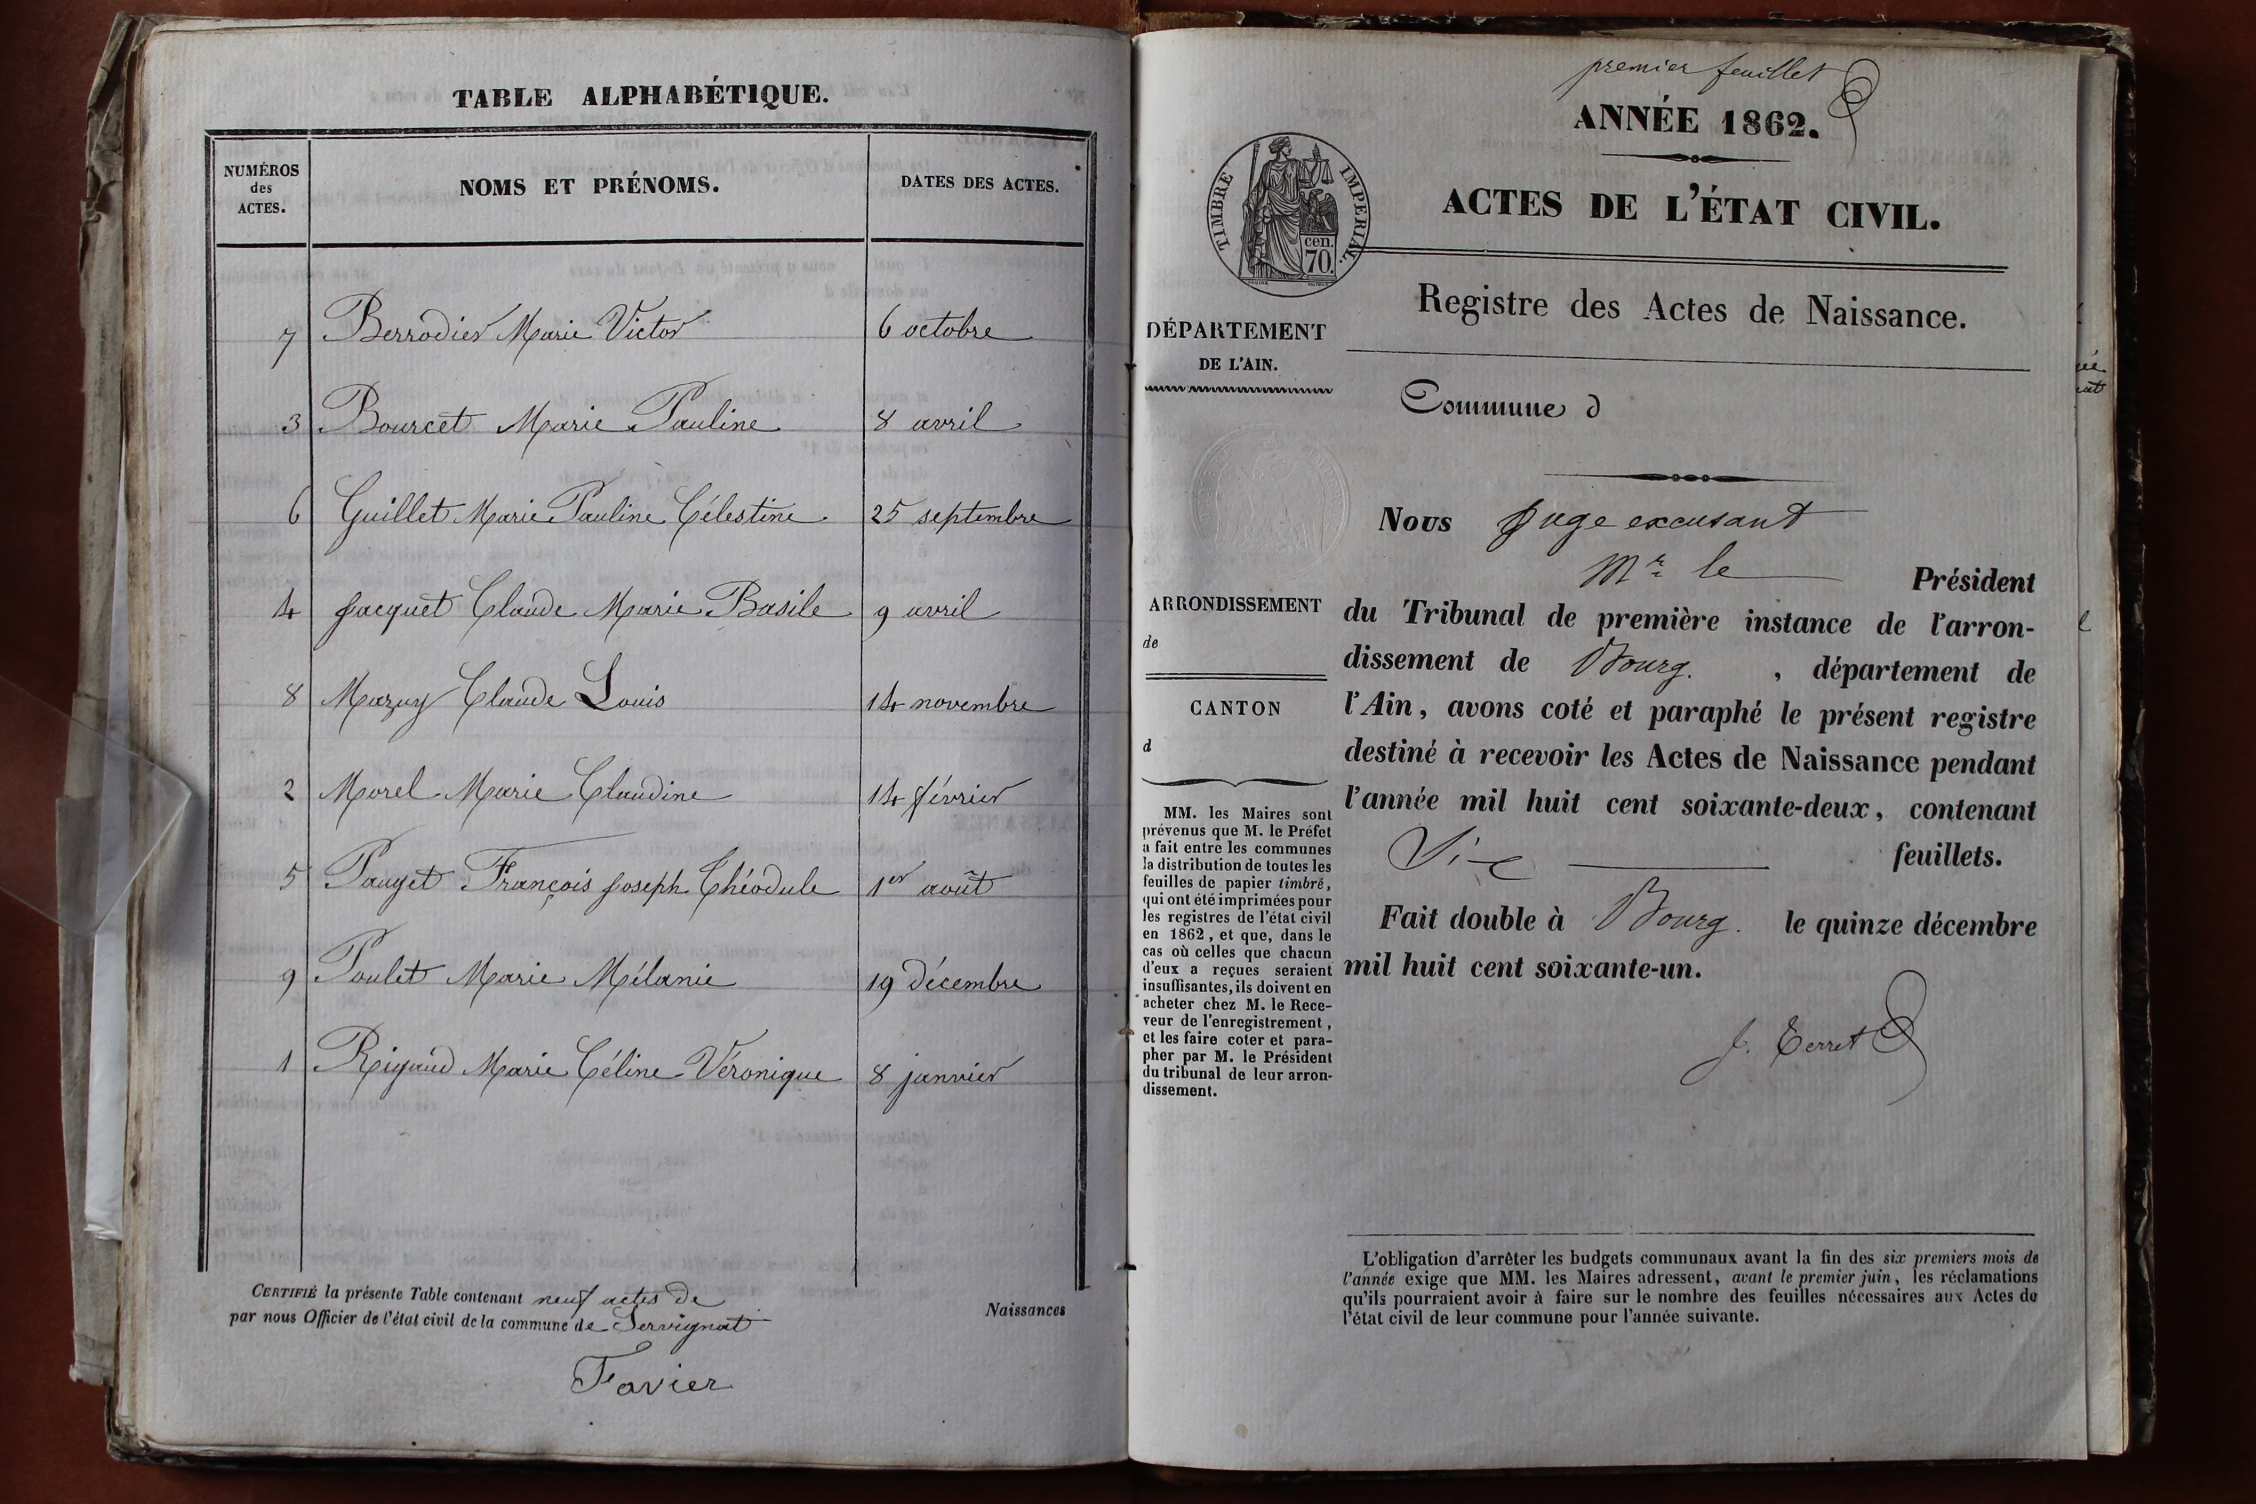 TABLE ALPHABÉTIQUE.
NUMÉROS des ACTES. NOMS ET PRÉNOMS. DATES DES ACTES.
7 Berrodier Marie Victor 6 octobre
3 Bourcet Marie Pauline 8 avril
6 Guillet Marie Pauline Célestine 25 septembre
4 Jacquet Claude Marie Basile 9 avril
8 Mazuy Claude Louis 14 novembre
2 Morel Marie Claudine 14 février
5 Pauget François Joseph Théodule 1er août
9 Poulet Marie Mélanie 19 décembre
1 Rigaud Marie Céline Véronique 8 janvier
CERTIFIÉ la présente Table contenant neuf actes de Naissances
par nous Officier de l'état civil de la commune de Servignat
Favier
premier feuillet
ANNÉE 1862.
TIMBRE IMPERIAL.
cen.
70.
ACTES DE L'ÉTAT CIVIL.
Registre des Actes de Naissance.
DÉPARTEMENT
DE L'AIN.
ARRONDISSEMENT
de
CANTON
d
MM. les Maires sont
prévenus que M. le Préfet
a fait entre les communes
la distribution de toutes les
feuilles de papier timbré,
qui ont été imprimées pour
les registres de l'état civil
en 1862, et que, dans le
cas où celles que chacun
d'eux a reçues seraient
insuffisantes, ils doivent en
acheter chez M. le Rece-
veur de l'enregistrement,
et les faire coter et para-
pher par M. le Président
du tribunal de leur arron-
dissement.
Commune d
Nous Juge excusant
Mr le Président
du Tribunal de première instance de l'arron-
dissement de Bourg. , département de
l'Ain, avons coté et paraphé le présent registre
destiné à recevoir les Actes de Naissance pendant
l'année mil huit cent soixante-deux, contenant
Six feuillets.
Fait double à Bourg. le quinze décembre
mil huit cent soixante-un.
J. Terret
L'obligation d'arrêter les budgets communaux avant la fin des six premiers mois de
l'année exige que MM. les Maires adressent, avant le premier juin, les réclamations
qu'ils pourraient avoir à faire sur le nombre des feuilles nécessaires aux Actes de
l'état civil de leur commune pour l'année suivante.